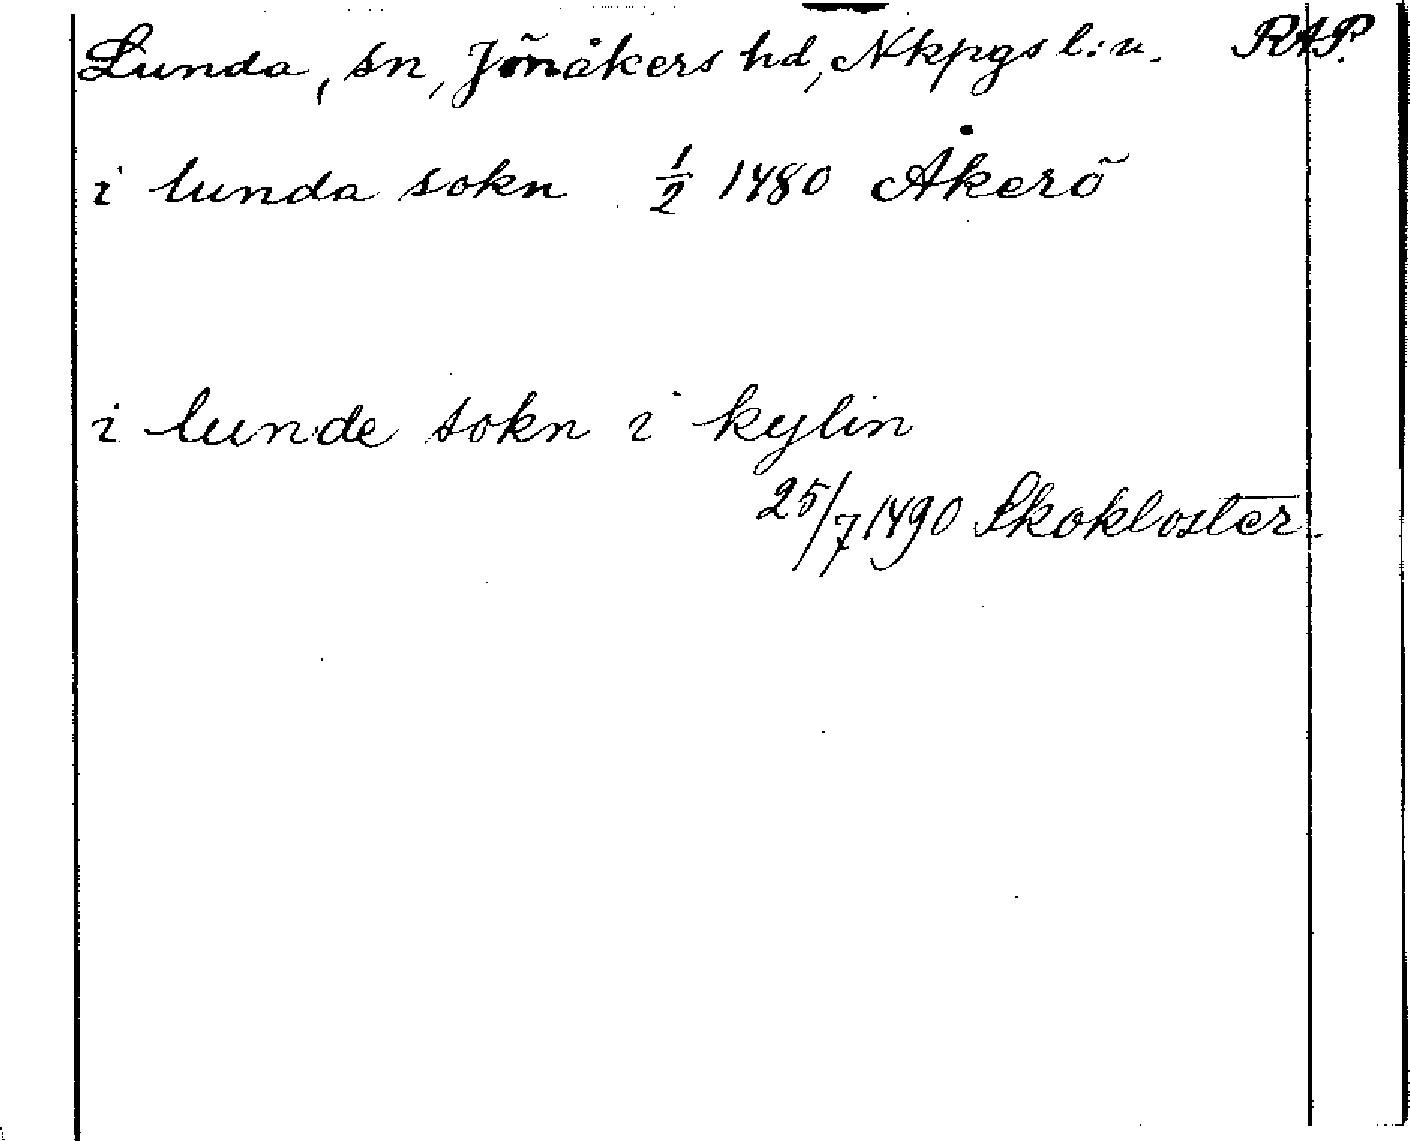 Lunda, sn, Jönåkers hd, Nkpgs l:n. RAP.
i lunda sokn 1/2 1480 Åkerö
i lunde sokn i kylin
25/7 1490 Skokloster.